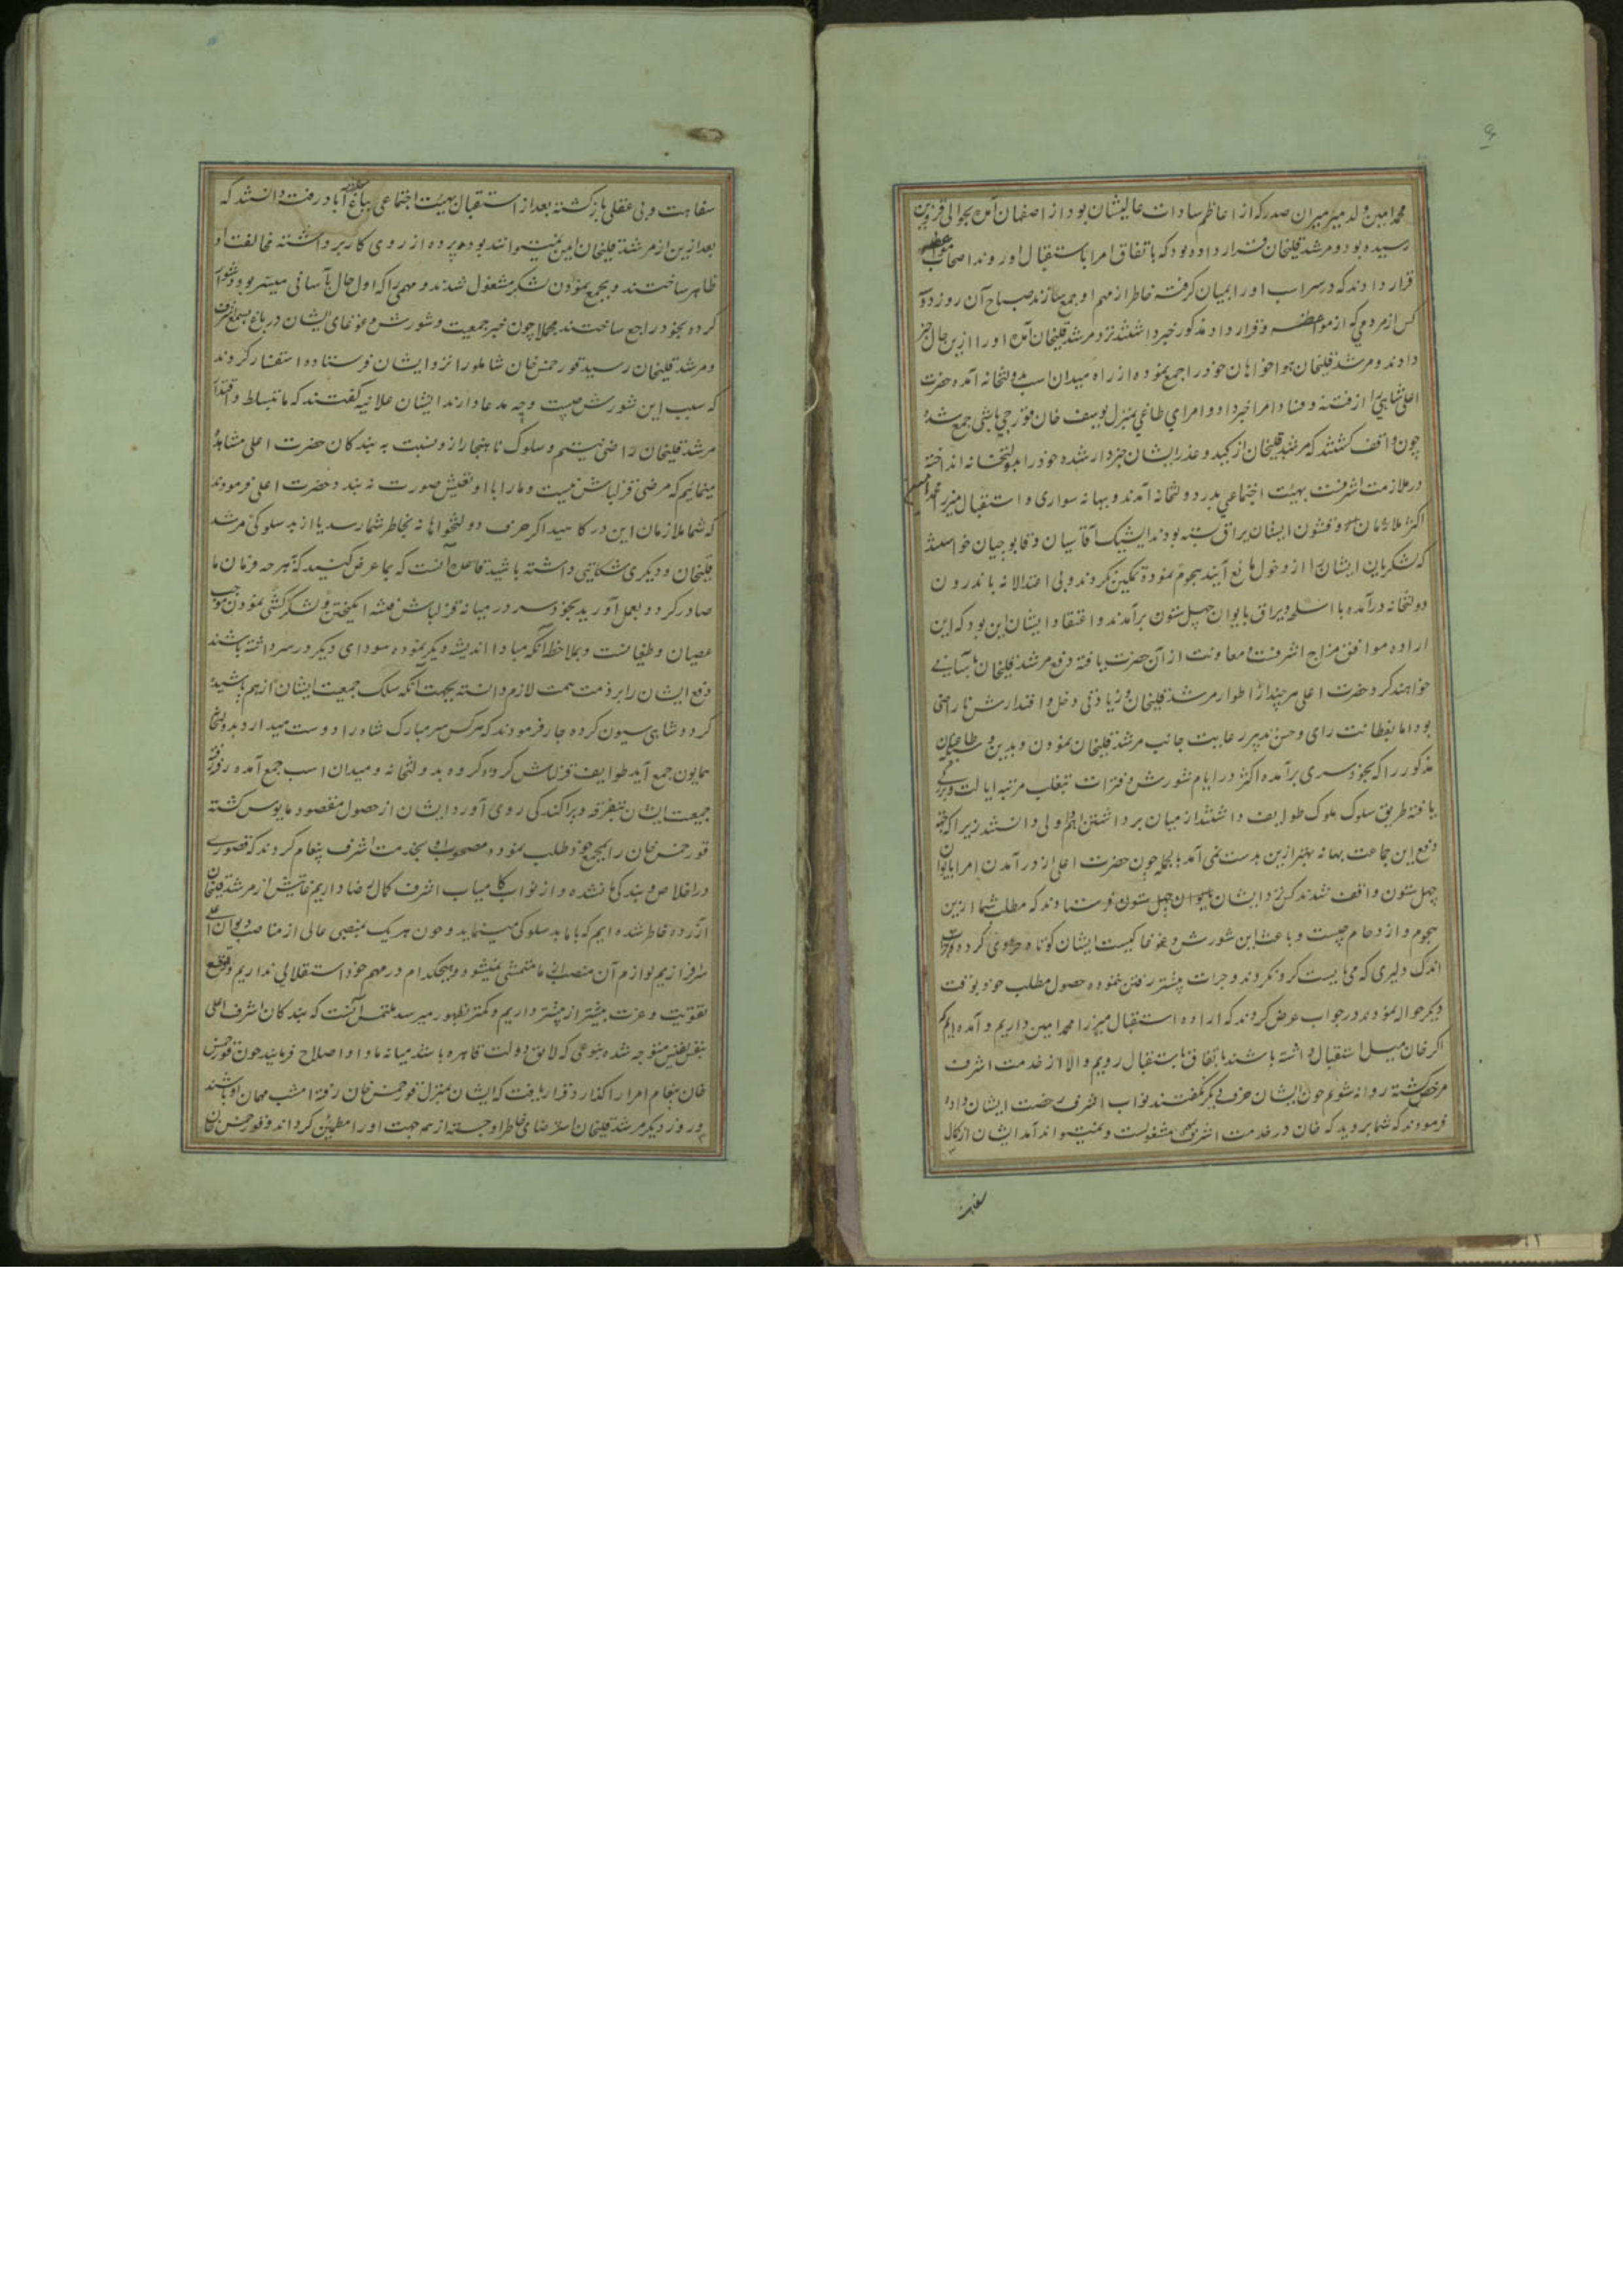 محمد امین ولد میر میران صدر که از اعاظم سادات عالیشان بود از اصفهان آمده بحوالی قزوین
رسیده بود و مرشد قلیخان قرار داده بود که باتفاق امرا باستقبال او روند اصحاب مواضعه
قرار دادند که در سر آب او را بمیان گرفته خاطر از مهم او جمع سازند صباح آن روز دو سه
کس از مردمی که از مواضعه و قرار داد مذکور خبر داشتند نزد مرشد قلیخان آمده او را ازین حال خبر
دادند و مرشد قلیخان هواخواهان خود را جمع نموده از راه میدان اسب بدولتخانه آمده حضرت
اعلی شاهی را از فتنه و فساد امرا خبر داد و امرای طاغی بمنزل یوسف خان قورچی باشی جمع شده
چون واقف گشتند که مرشد قلیخان از کید و عذر ایشان خبردار شده خود را بدولتخانه انداخته
در ملازمت اشرفست بهیئت اجتماعی بدر دولتخانه آمدند و بهانه سواری و استقبال میرزا محمد امین
اکثر ملازمان و قشون ایشان یراق بسته بودند ایشیک آقاسیان و قاپوجیان خواستند
که لشکریان ایشان را از دخول مانع آیند هجوم نموده تمکین نکردند و بی اعتدالانه باندرون
دولتخانه درآمده با اسلحه و یراق بایوان چهل ستون برآمدند و اعتقاد ایشان این بود که این
اراده موافق مزاج اشرفست معاونت از آن حضرت یافته دفع مرشد قلیخان بآسانی
خواهند کرد حضرت اعلی هر چند از اطوار مرشد قلیخان و زیادتی دخل و اقتدارش ناراضی
بود اما بفطانت رای و حسن تدبیر رعایت جانب مرشد قلیخان نمودن و بدین وسیله طاغیان
مذکور را که بخودسری برآمده اکثر در ایام شورش و فترات بتغلب مرتبه ایالت و بزرگی
یافته طریق سلوک ملوک طوایف داشتند از میان برداشتن اهم و اولی دانستند زیرا که جهة
دفع این جماعت بهانه بهتر ازین بدست نمی آمد بالجمله چون حضرت اعلی از درآمدن امرا بایوان
چهل ستون واقف شدند کس نزد ایشان بایوان چهل ستون فرستادند که مطلب شما ازین
هجوم و ازدحام چیست و باعث این شورش و غوغا کیست ایشان کوتاه حوصلگی کرده
اندک دلیری که می بایست کرد نکردند و جرات پیشتر رفتن ننموده حصول مطلب خود بوقت
دیگر حواله نمودند در جواب عرض کردند که اراده استقبال میرزا محمد امین داریم و آمده ایم که
اگر خان میل استقبال داشته باشند باتفاق باستقبال رویم و الا از خدمت اشرف
مرخص گشته روانه شویم چون ایشان حرف دیگر نگفتند نواب اشرف رخصت ایشان داده
فرمودند که شما بروید که خان در خدمت اشرف بمهمی مشغولست و نمیتواند آمد ایشان از کمال
سفاهت
سفاهت و بی عقلی بازگشته بعد از استقبال بهیئت اجتماعی بباغ سعادت آباد رفته دانستند که
بعد ازین از مرشد قلیخان ایمن نمیتوانند بود پرده از روی کار برداشته مخالفت او
ظاهر ساختند و بجمع نمودن لشکر مشغول شدند و مهمی را که اول حال بآسانی میسر بود دشوار
کرده بخود راجع ساختند مجملا چون خبر جمعیت و شورش و غوغای ایشان در باغ بسمع اشرف
و مرشد قلیخان رسید قورخمس خان شاملو را نزد ایشان فرستاده استفسار کردند
که سبب این شورش چیست و چه مدعا دارند ایشان علانیه گفتند که ما بتسلط و اقتدار
مرشد قلیخان راضی نیستیم و سلوک ناهنجار ازو نسبت به بندگان حضرت اعلی مشاهده
مینمائیم که مرضی قزلباش نیست و ما را با او تعیش صورت نه بندد حضرت اعلی فرمودند
که شما ملازمان این درگاهید اگر حرف دولتخواهانه بخاطر شما رسد یا از بد سلوکی مرشد
قلیخان و دیگری شکایتی داشته باشید قاعده آنست که بما عرض کنید که بهرچه فرمان ما
صادر گردد بعمل آورید بخودسر در میانه قزلباش فتنه انگیختن و لشکرکشی نمودن موجب
عصیان و طغیانست و بملاحظه آنکه مبادا اندیشه دیگر نموده سودای دیگر در سر داشته باشند
دفع ایشان را بر ذمت همت لازم دانسته بجهت آنکه سلک جمعیت ایشان از هم پاشیده
گردد شاهی سیون کرده جار فرمودند که هر کس سر مبارک شاه را دوست میدارد بدولتخانه
همایون جمع آید طوایف قزلباش گروه گروه بدولتخانه و میدان اسب جمع آمده رفته رفته
جمعیت ایشان بتفرقه و پراکندگی روی آورد ایشان از حصول مقصود مایوس گشته
قورخمس خان را بمجمع خود طلب نموده مصحوب او بخدمت اشرف پیغام کردند که قصوری
در اخلاص و بندگی ما نشده و از نواب کامیاب اشرف کمال رضا داریم غایتش از مرشد قلیخان
آزرده خاطر شده ایم که با ما بد سلوکی مینماید و چون هر یک بمنصبی عالی از مناصب دیوان اعلی
سرافرازیم لوازم آن منصب از ما متمشی نمیشود و هیچکدام در مهم خود استقلالی نداریم و توقع
تقویت و عزت بیشتر از پیشتر داریم و کمتر بظهور میرسد ملتمس آنست که بندگان اشرف اعلی
بنفس نفیس متوجه شده بنوعی که لایق دولت قاهره باشد میانه ما و او اصلاح فرمایند چون قورخمس
خان پیغام امرا را گذارد قرار یافت که ایشان بمنزل قورخمس خان رفته امشب مهمان او باشند
و روز دیگر مرشد قلیخان استرضای خاطر او جسته از همه جهت او را مطمئن گرداند و قورخمس خان